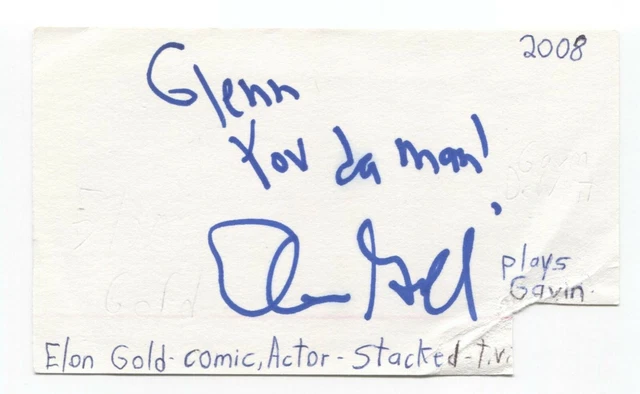 2008
Glenn
You da man!
Elon Gold
plays
Gavin.
Elon Gold- comic, Actor - Stacked - t.v.